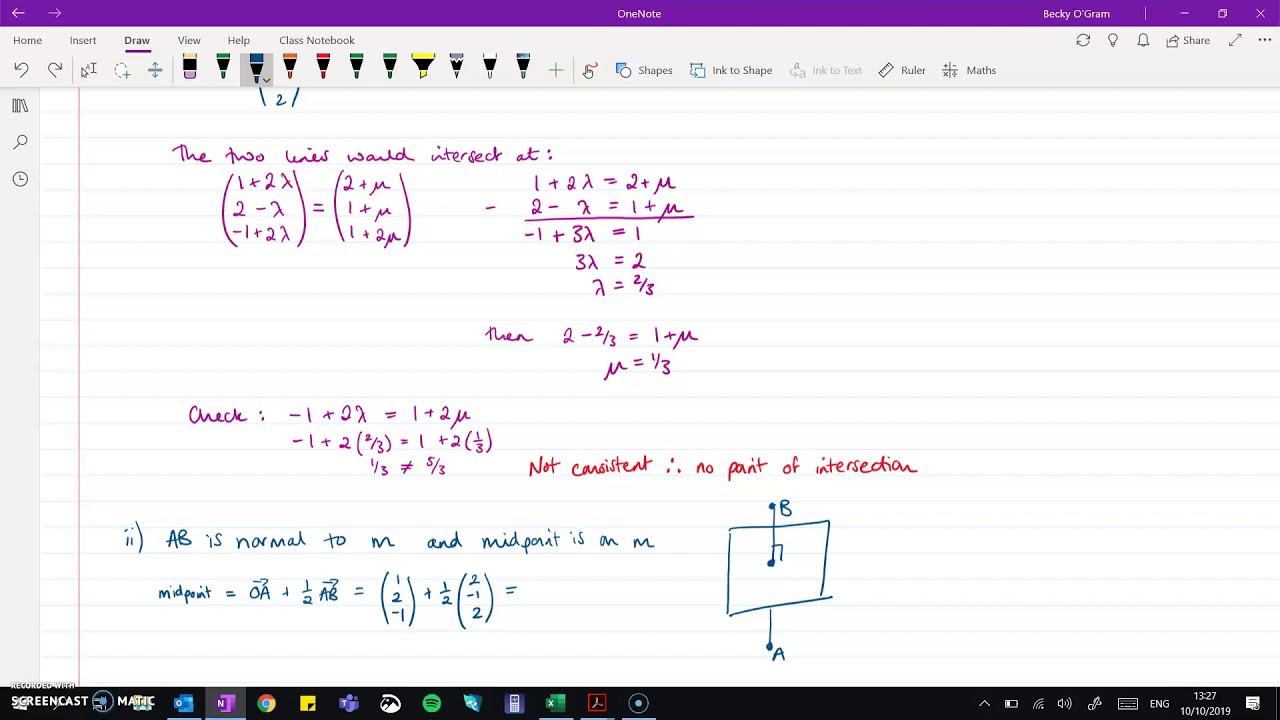 OneNote
Becky O'Gram
Home Insert Draw View Help Class Notebook Share
Shapes Ink to Shape Ink to Text Ruler Maths
2
The two lines would intersect at:
(1+2λ, 2-λ, -1+2λ) = (2+μ, 1+μ, 1+2μ)
1 + 2λ = 2+μ
- 2 - λ = 1+μ
-1 + 3λ = 1
3λ = 2
λ = 2/3
then 2 - 2/3 = 1+μ
μ = 1/3
Check: -1 + 2λ = 1 + 2μ
-1 + 2(2/3) = 1 + 2(1/3)
1/3 ≠ 5/3
Not consistent ∴ no point of intersection
ii) AB is normal to m and midpoint is on m
midpoint = OA + 1/2 AB = (1, 2, -1) + 1/2 (2, -1, 2) =
B
A
RECORDED WITH
SCREENCAST MATIC
ENG
13:27
10/10/2019